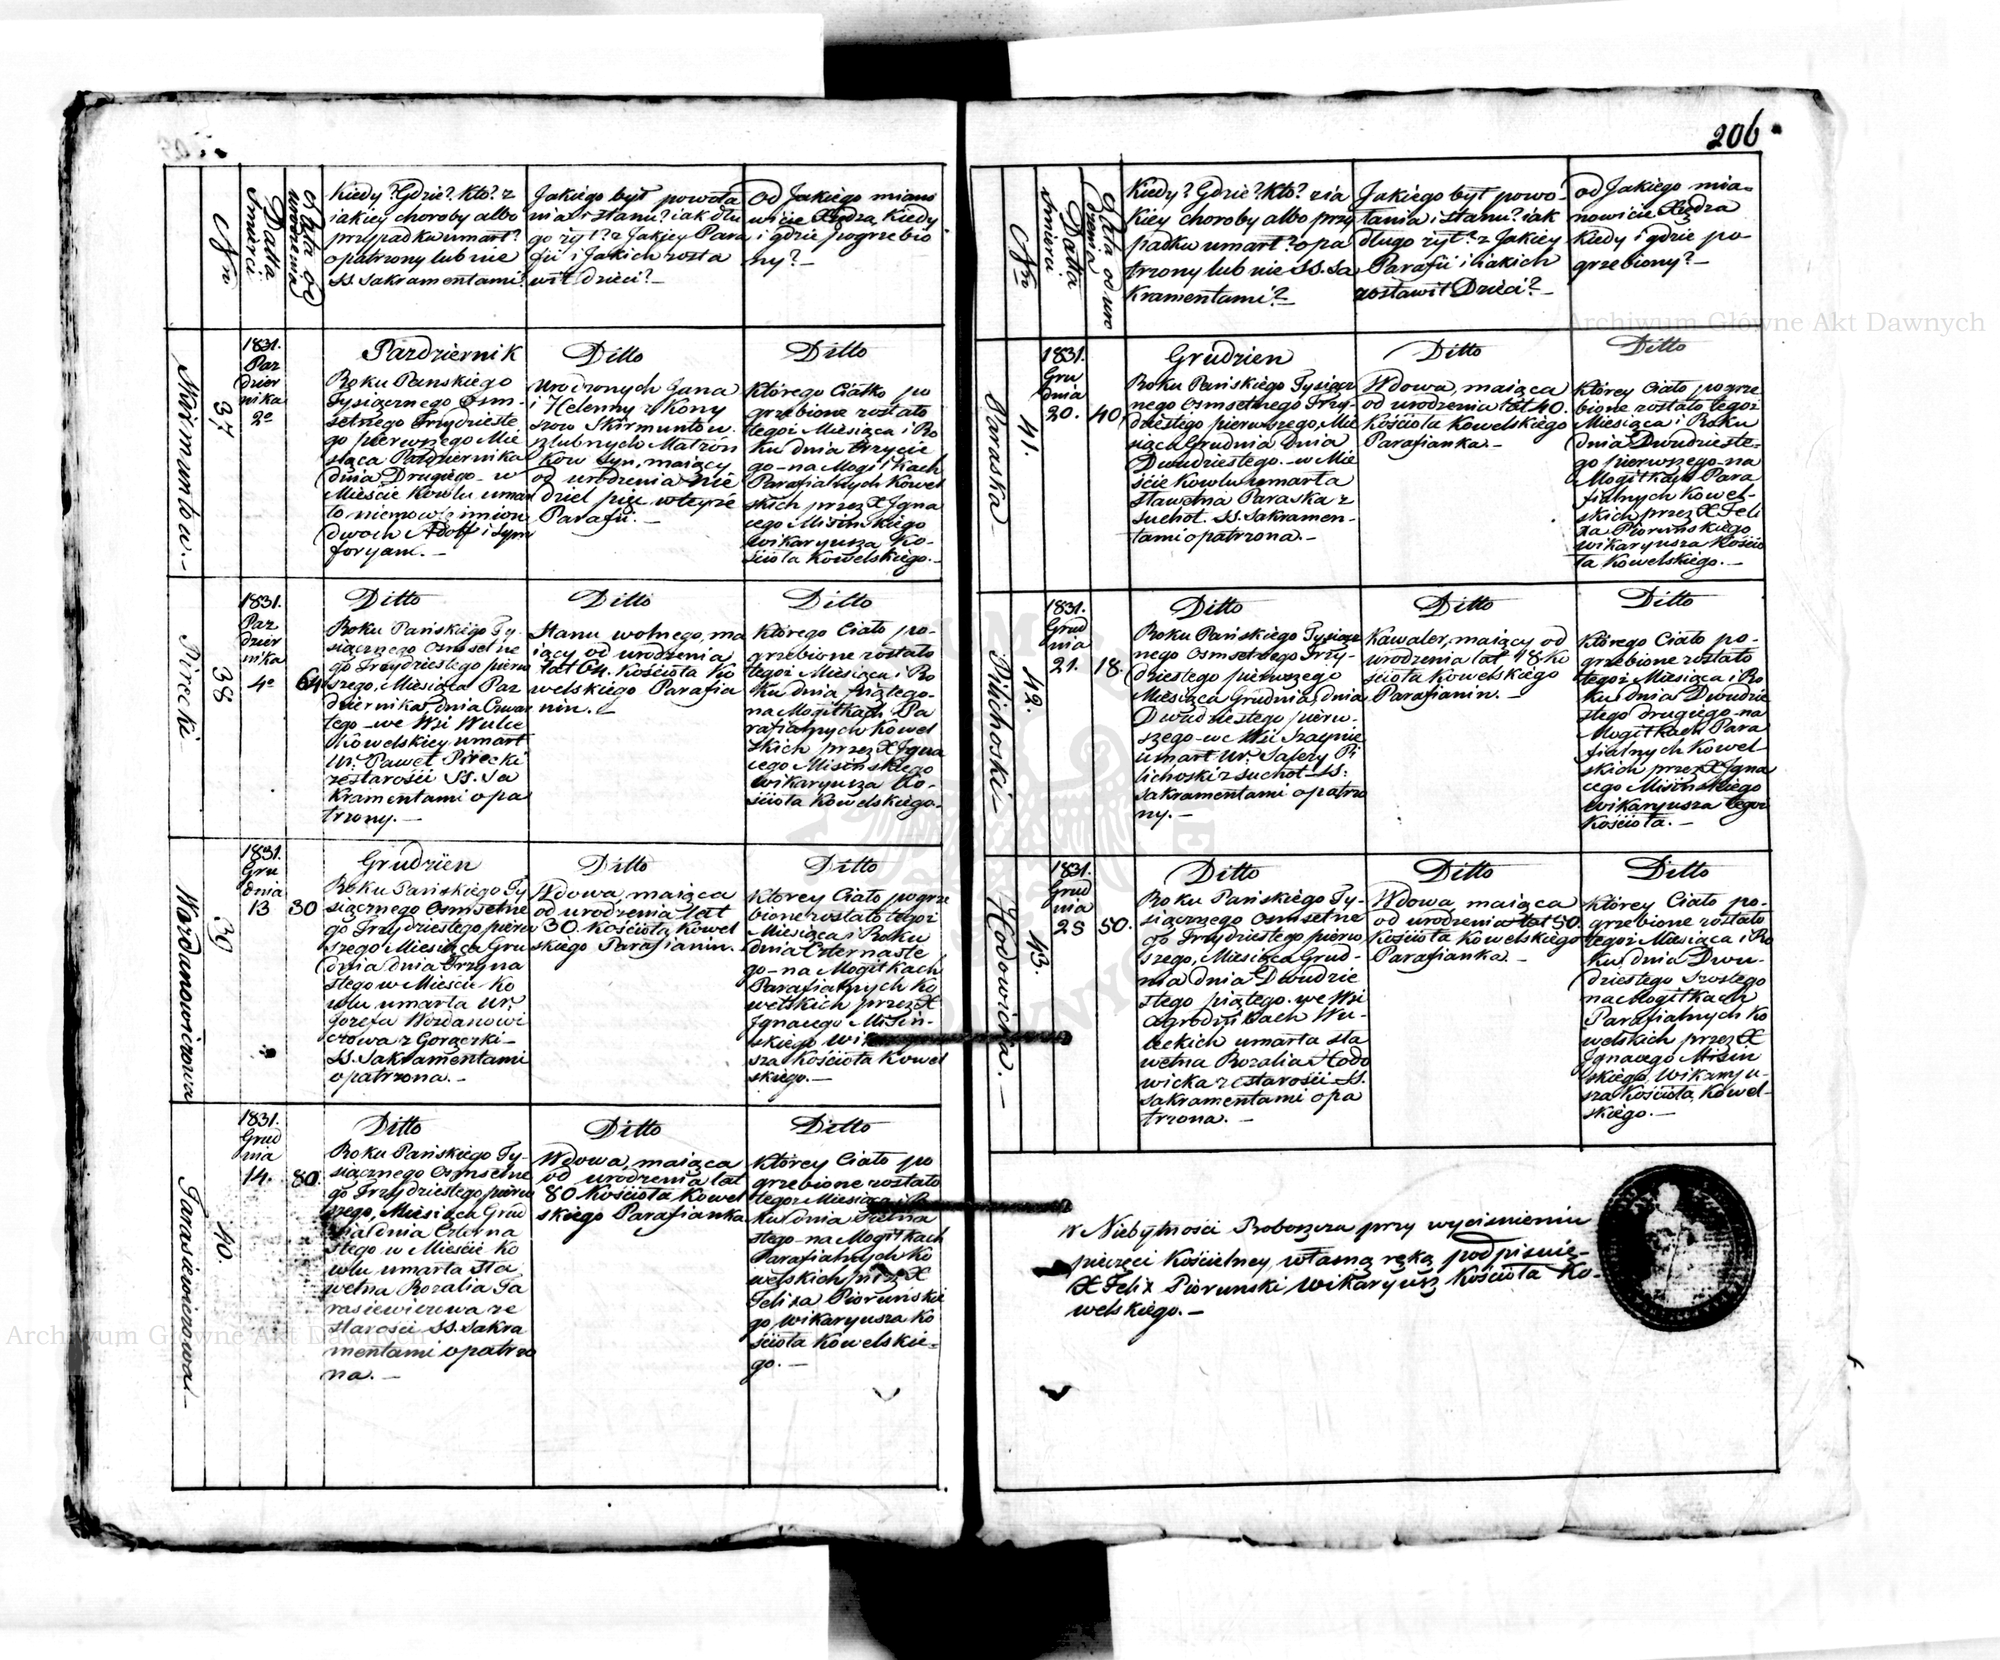 206
Nr
Datta śmierci.
Lata od urodzenia
Kiedy? Gdzie? kto? z
iakiey choroby albo
przypadku umarł?
opatrzony lub nie
SS. Sakramentami?
Jakiego był powoła
nia i stanu? iak dłu
go żył? z Jakiey Para
fii i Jakich zosta
wił dzieci?—
Od Jakiego miano
wicie Xiędza kiedy
i gdzie pogrzebio
ny?—
Skirmuntow.—
37
1831.
Paz
dzier
nika
2o
Pazdziernik
Roku Pańskiego
Tysiącznego Osm-
setnego Trzydzieste
go pierwszego Mie
siąca Pazdziernika
dnia Drugiego w
Mieście Kowlu umar
ło niemowle imion
dwoch Adolf i Sym
foryan.—
Ditto
Urodzonych Jana
i Helenny z Kony
szow Skirmuntow
szlubnych Małżon
kow Syn, maiący
od urodzenia nie
dziel pięć w teyże
Parafii.—
Ditto
Którego Ciałko po
grzebione zostało
tegoż Miesiąca i Ro
ku dnia trzycie
go na Mogiłkach
Parafialnych Kowel
skich przez X Jgna
cego Misińskiego
Wikaryusza Ko-
ścioła Kowelskiego.—
Pirecki—
38
1831.
Paz
dzier
nika
4o
64
Ditto
Roku Pańskiego Ty-
siącznego Osmsetne
go Trzydziestego pierw
szego, Miesiąca Paz
dziernika dnia Czwar
tego we Wsi Wulce
Kowelskiey umarł
Ur. Paweł Pirecki
ze starości SS. Sa
kramentami opa
trzony.—
Ditto
Stanu wolnego, ma
iący od urodzenia
lat 64. Kościoła Ko
welskiego Parafia
nin.
Ditto
Którego Ciało po-
grzebione zostało
tegoż Miesiąca i Ro
ku dnia piątego-
na Mogiłkach Pa
rafialnych Kowel
skich przez X Jgna
cego Misińskiego
Wikaryusza Ko-
ścioła Kowelskiego-
Wozdanowiczowa
39
1831.
Gru
dnia
13
30
Grudzien
Roku Pańskiego Ty
siącznego Osmsetne
go Trzydziestego pierw
szego Miesiąca Gru
dnia dnia Trzyna
stego w Mieście Ko
wlu umarła Ur.
Jozefa Wozdanowi
czowa z Gorączki—
SS. Sakramentami
opatrzona.—
Ditto
Wdowa, maiąca
od urodzenia lat
30. Kościoła Kowel
skiego Parafianin.
Ditto
Którey Ciało pogrze
bione zostało tegoż
Miesiąca i Roku
dnia Czternaste
go na Mogiłkach
Parafialnych Ko
welskich przez X
Jgnacego Misiń-
skiego Wikaryu
sza Kościoła Kowel
skiego.—
Tarasiewiczowa.—
40.
1831.
Grud
nia
14.
80
Ditto
Roku Pańskiego Ty-
siącznego Osmsetne
go Trzydziestego pierw
szego, Miesiąca Grud
nia dnia Czterna
stego w Mieście Ko
wlu umarła Sła
wetna Rozalia Ta
rasiewiczowa ze
starości SS. Sakra
mentami opatrzo
na.—
Ditto
Wdowa, maiąca
od urodzenia lat
80. Kościoła Kowel
skiego Parafianka
Ditto
Którey Ciało po
grzebione zostało
tegoż Miesiąca i Ro
ku dnia Piętna
stego na Mogiłkach
Parafialnych Ko
welskich przez X
Felixa Pioruńskie
go Wikaryusza Ko
ścioła Kowelskie-
go.—
Nr
Datta śmierci
Lata od uro
dzenia
Kiedy? Gdzie? kto? z ia
kiey choroby albo przy
padku umarł? opa
trzony lub nie SS. Sa
kramentami?—
Jakiego był powo-
łania i stanu? iak
długo żył? z Jakiey
Parafii i iakich
zostawił Dzieci?—
Od Jakiego mia-
nowicie Xiędza
kiedy i gdzie po-
grzebiony?—
Paraska—
41.
1831.
Gru
dnia
20.
40
Grudzien
Roku Pańskiego Tysiącz
nego Osmsetnego Trzy-
dziestego pierwszego, Mie
siąca Grudnia Dnia
Dwudziestego.- w Mie
ście Kowlu umarła
sławetna Paraska z
suchot SS. Sakramen-
tami opatrzona.—
Ditto
Wdowa, maiąca
od urodzenia lat 40.
Kościoła Kowelskiego
Parafianka.—
Ditto
Którey Ciało pogrze
bione zostało tegoż
Miesiąca i Roku
dnia Dwudzieste-
go pierwszego na
Mogiłkach Para
fialnych Kowel-
skich przez X Feli
xa Pioruńskiego
Wikaryusza Kościo
ła Kowelskiego.—
Pilichoski—
42.
1831.
Grud
nia
21.
18.
Ditto
Roku Pańskiego Tysiącz
nego Osmsetnego Trzy-
dziestego pierwszego
Miesiąca Grudnia, dnia
Dwudziestego pierw-
szego we Wsi Szaynie
umarł Ur. Xawery Pi
lichoski z suchot SS.
Sakramentami opatrzo
ny.—
Ditto
Kawaler, maiący od
urodzenia lat 18. Ko
ścioła Kowelskiego
Parafianin.—
Ditto
Którego Ciało po-
grzebione zostało
tegoż Miesiąca i Ro
ku dnia Dwudzie
stego drugiego na
Mogiłkach Para
fialnych Kowel-
skich przez X Jgna
cego Misińskiego
Wikaryusza tegoż
Kościoła.—
Hodowicka.—
43.
1831.
Grud
nia
25
50.
Ditto
Roku Pańskiego Ty-
siącznego Osmsetne
go Trzydziestego pierw
szego, Miesiąca Grud-
nia dnia Dwudzie
stego piątego we Wsi
Ogrodnikach Wu-
leckich umarła sła
wetna Rozalia Hodo
wicka ze starości SS.
Sakramentami opa
trzona.—
Ditto
Wdowa, maiąca
od urodzenia lat 50.
Kościoła Kowelskiego
Parafianka.—
Ditto
Którey Ciało po-
grzebione zostało
tegoż Miesiąca i Ro
ku, dnia Dwu-
dziestego Szostego
na Mogiłkach
Parafialnych Ko
welskich przez X
Jgnacego Misiń
skiego, Wikaryu-
sza Kościoła Kowel-
skiego.—
W Niebytności Proboszcza przy wyciśnieniu
pieczęci Kościelney własną ręką podpisuię-
X Felix Pioruński Wikaryusz Kościoła Ko-
welskiego.—
Archiwum Główne Akt Dawnych
Archiwum Główne Akt Dawnych